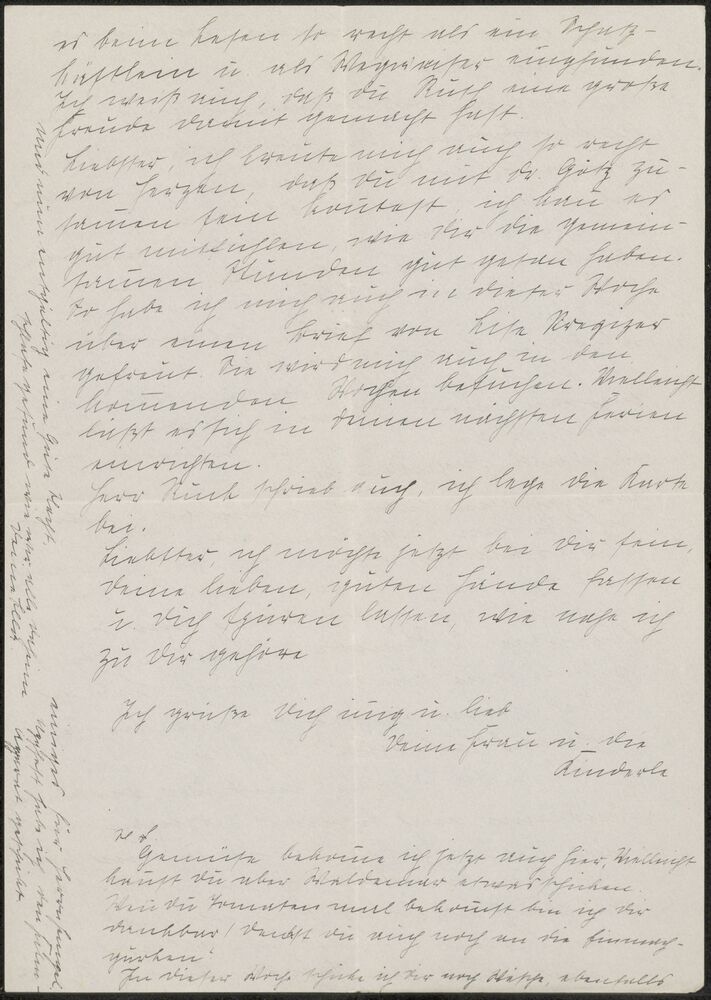 es beim Lesen so recht als ein Schatz-
kästlein u. als Wegweiser empfunden.
Ich weiß auch, daß du Ruth eine große
Freude damit gemacht hast.
Liebster, ich freute mich auch so recht
von Herzen, daß du mit Dr. Götz zu-
sammen sein konntest, ich kann es
gut mitfühlen, wie dir die gemein-
samen Stunden gut getan haben.
So habe ich mich auch in dieser Woche
über einen Brief von Lise gefreut.
Sie wird mich auch in den
kommenden Wochen besuchen. Vielleicht
läßt es sich in deinen nächsten Ferien
einrichten.
Herr schrieb auch, ich lege die Karte
bei.
Liebster, ich möchte jetzt bei dir sein,
deine lieben, guten Hände fassen
u. dich spüren lassen, wie nahe ich
zu dir gehöre
Ich grüße dich innig u. lieb
deine Frau u. die
Kinderle
Gemüse bekomme ich jetzt auch hier. Vielleicht
kannst du aber Waldemar etwas schicken.
Wenn du Tomaten mal bekommst bin ich dir
dankbar! Denkst du auch noch an die Einmach-
gurken?
In dieser Woche schicke ich dir noch Wäsche, ebenfalls
einiges für Herrn
Und nun eine gute Nacht.